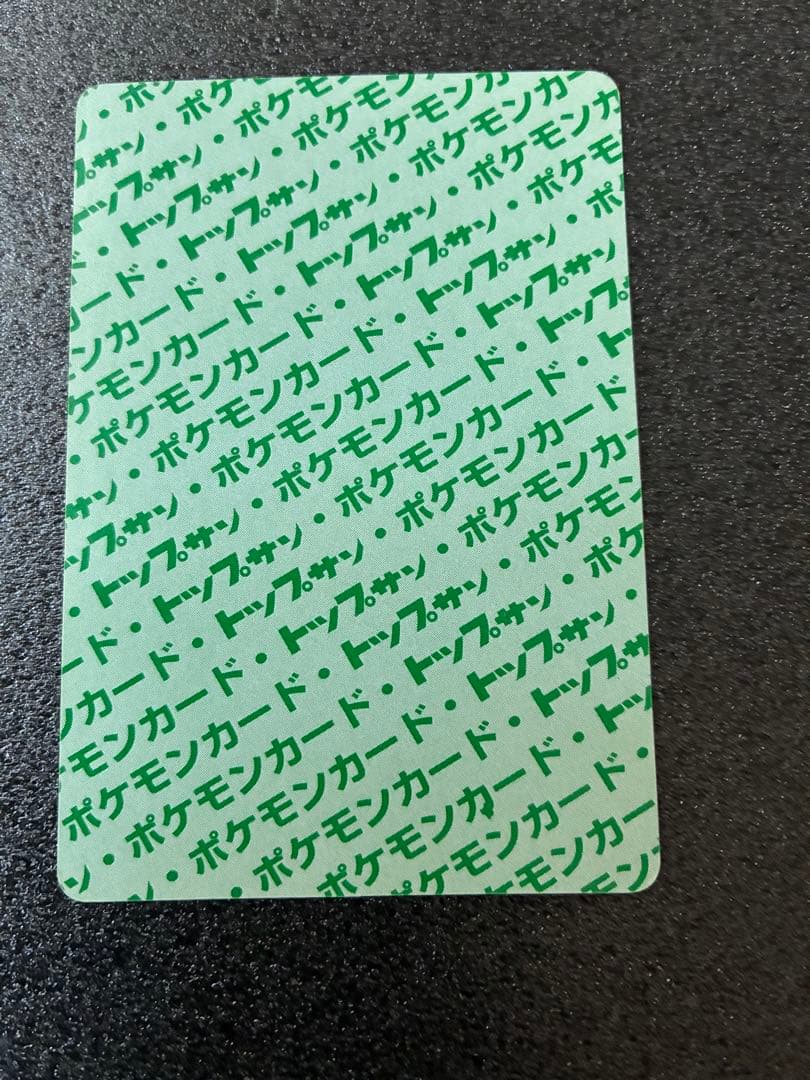 ン・ポケ
プサン・ポケ
トップサン・ポケモ
・トップサン・ポケモン
ード・トップサン・ポケモンカ
ンカード・トップサン・ポケモンカー
ケモンカード・トップサン・ポケモンカ
・ポケモンカード・トップサン・ポケモ
サン・ポケモンカード・トップサン・ポ
ップサン・ポケモンカード・トップサン
・トップサン・ポケモンカード・トップ
ード・トップサン・ポケモンカード・ト
カード・トップサン・ポケモンカード
モンカード・トップサン・ポケモンカ
ポケモンカード・トップサン・ポケモン
ン・ポケモンカード・トップサン・ポケ
ン・ポケモンカード・トップサン・
・ポケモンカード・トップサ
ポケモンカード・トッ
ポケモンカード・
ケモンカー
モン